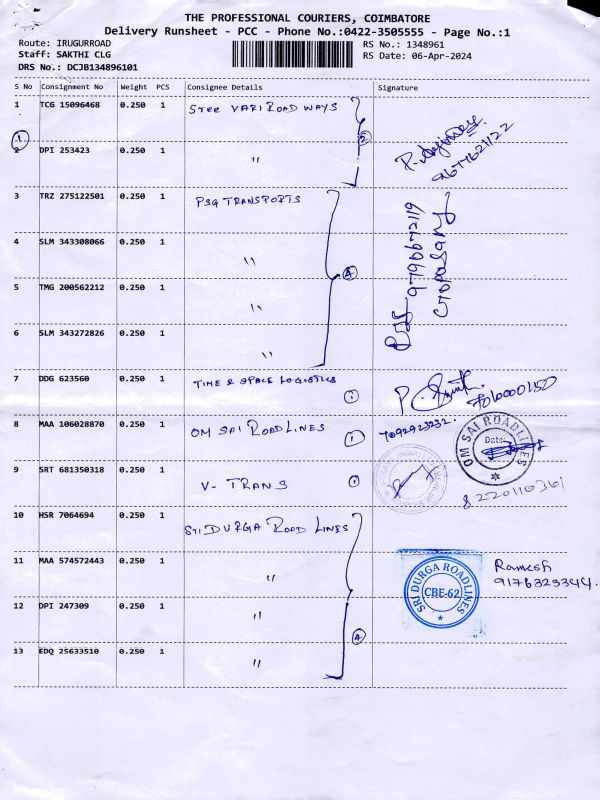 THE PROFESSIONAL COURIERS, COIMBATORE
Delivery Runsheet - PCC - Phone No.:0422-3505555 - Page No.:1
Route: IRUGURROAD
RS No.: 1348961
Staff: SAKTHI CLG
RS Date: 06-Apr-2024
DRS No.: DCJB134896101
S No Consignment No Weight PCS Consignee Details Signature
1 TCG 15096468 0.250 1 Sree VARI ROAD WAYS
1
2 DPI 253423 0.250 1 "
2
9677621122
3 TRZ 275122501 0.250 1 PSG TRANSPORTS
4 SLM 343308066 0.250 1 "
4
9790672119
5 TMG 200562212 0.250 1 "
6 SLM 343272826 0.250 1 "
7 DDG 623560 0.250 1 TIME & SPACE LOGISTICS 1
8 MAA 106028870 0.250 1 OM SAI ROAD LINES 1
7092923232.
OM SAI ROADLINES
Date:
9 SRT 681350318 0.250 1 V- TRANS 1
10 HSR 7064694 0.250 1 Sri DURGA ROAD LINES
11 MAA 574572443 0.250 1 "
SRI DURGA ROADLINES
CBE-62
Ramesh
9176323344.
12 DPI 247309 0.250 1 "
4
13 EDQ 25633510 0.250 1 "